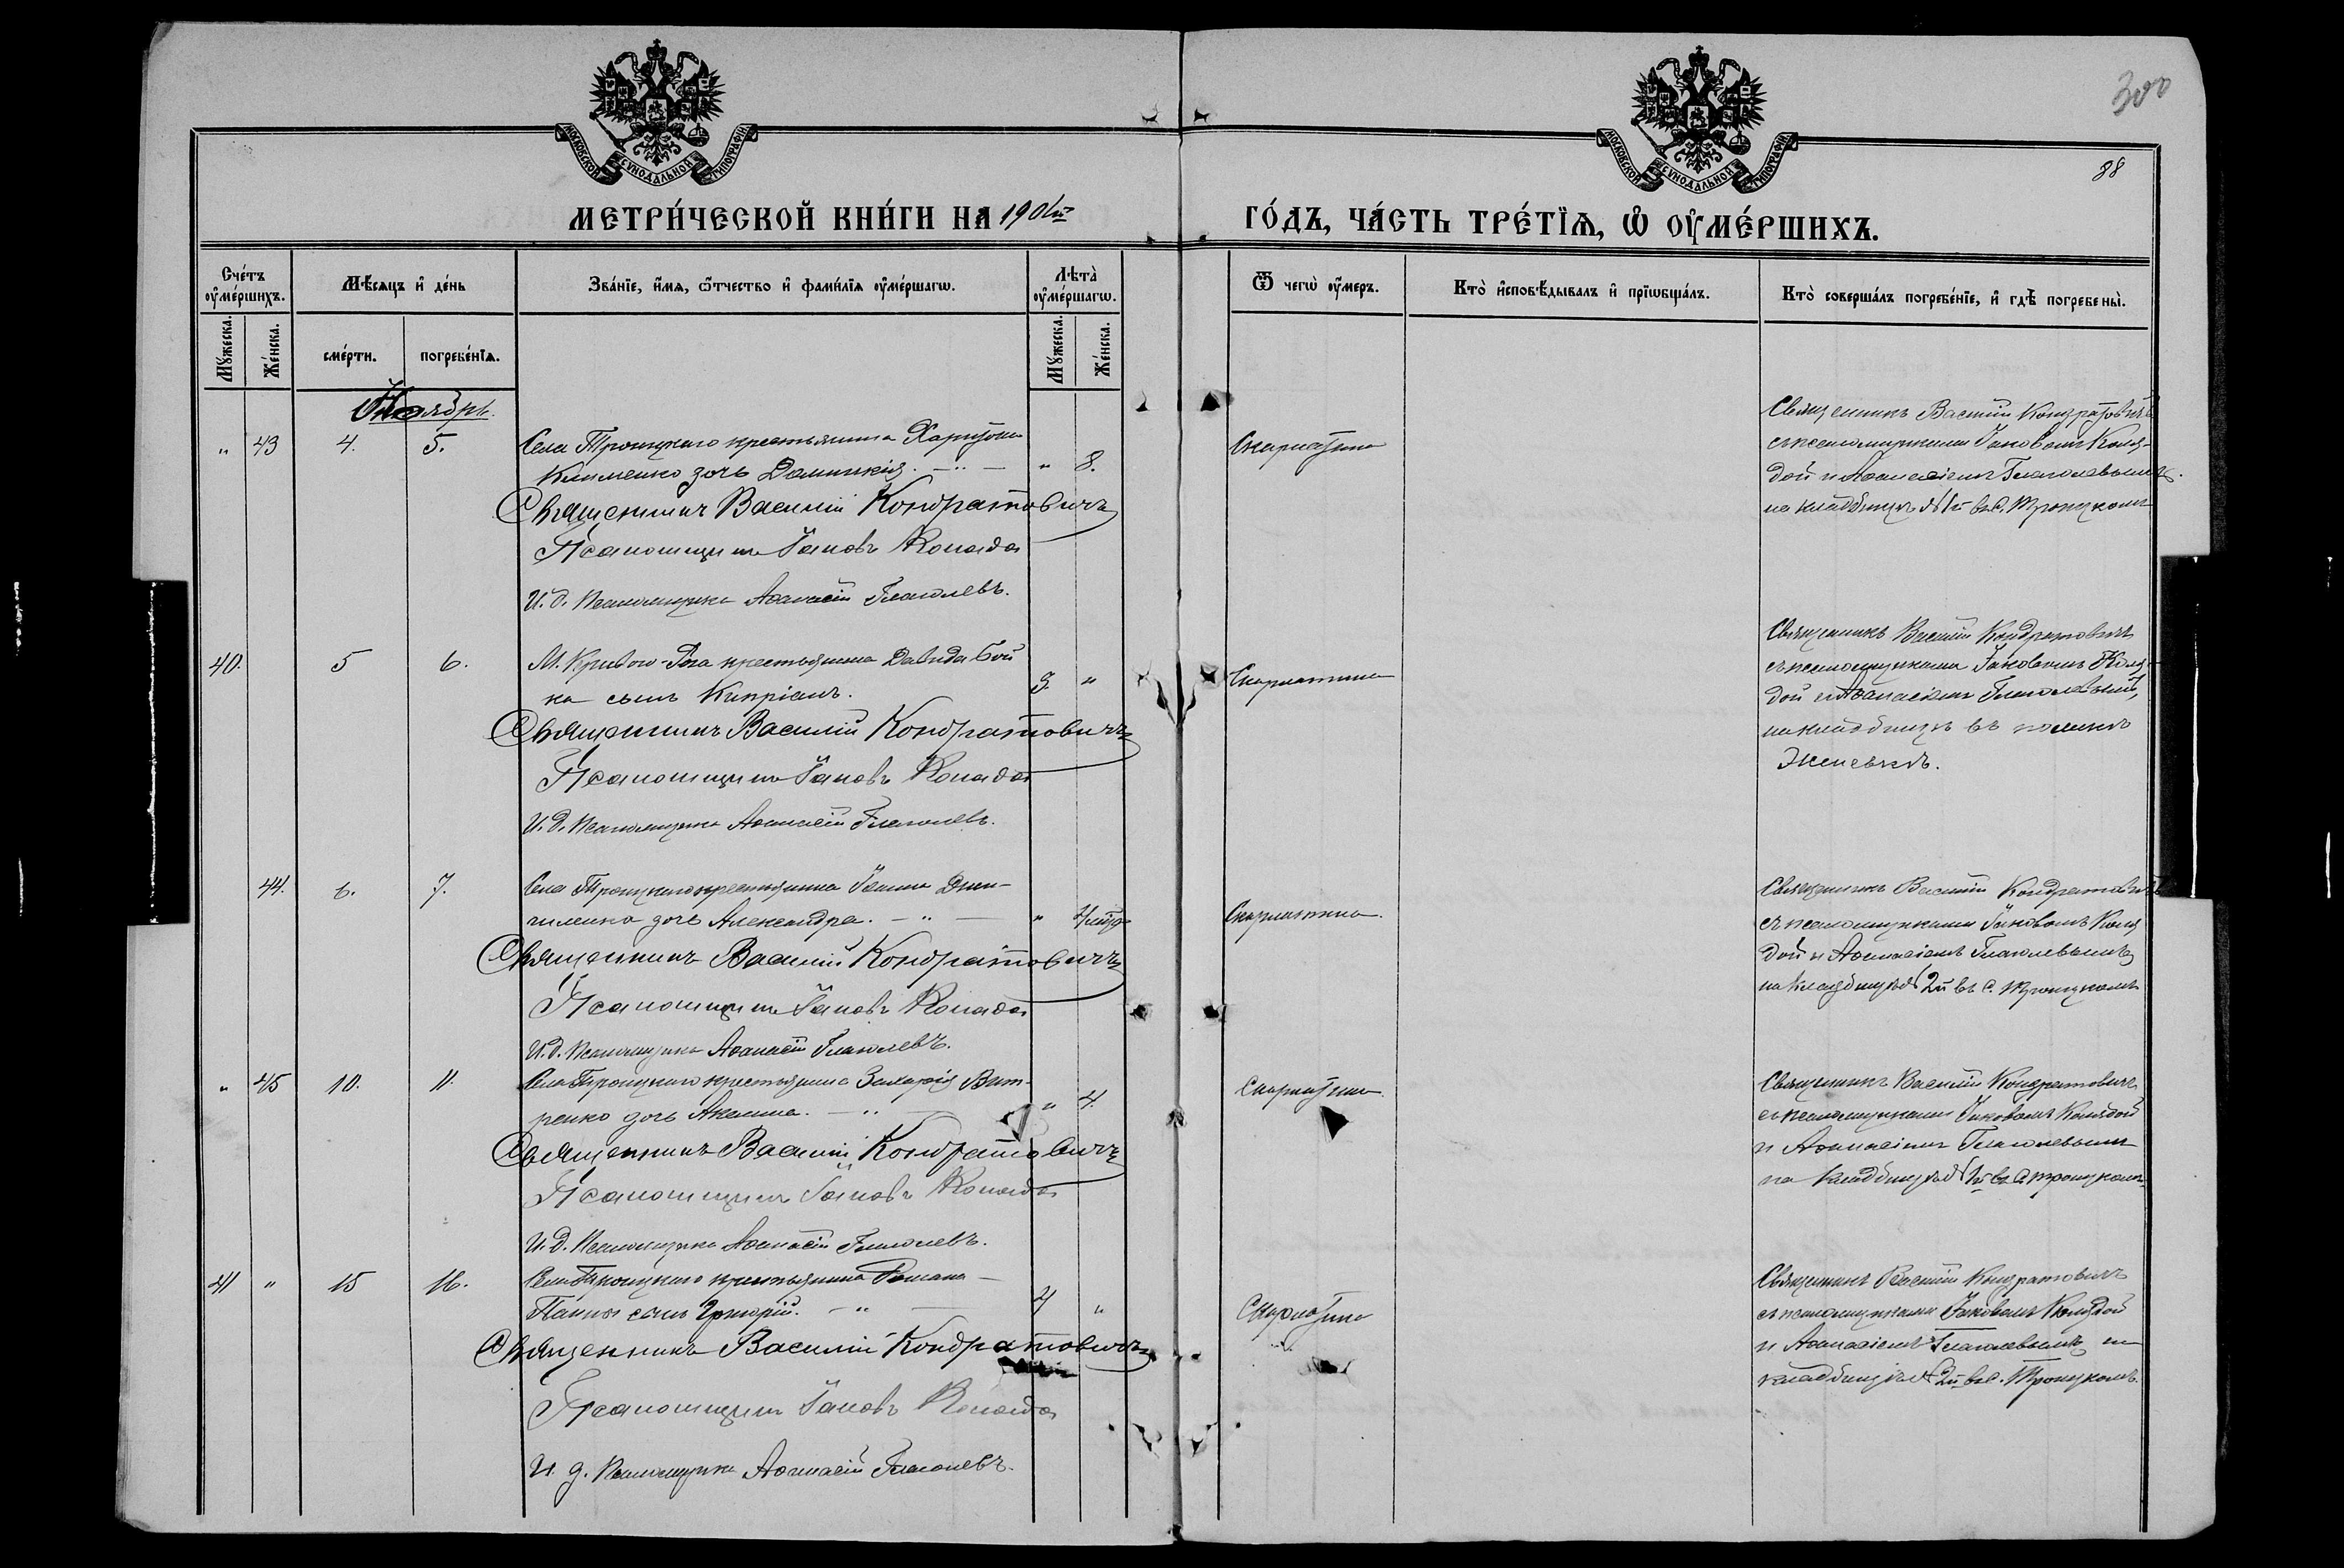 300
88
МОСКОВСКОЙ СѴНОДАЛЬНОЙ ТИПОГРАФІИ
МОСКОВСКОЙ СѴНОДАЛЬНОЙ ТИПОГРАФІИ
МЕТРИ́ЧЕСКОЙ КНИ́ГИ НА 1901й
ГО́ДЪ, ЧА́СТЬ ТРЕ́ТЇѦ, Ѡ҆ ОУ҆МЕ́РШИХЪ.
Сче́тъ оу҆ме́ршихъ.
Мꙋ́жеска.
Же́нска.
Мѣ́сяцъ и҆ де́нь
сме́рти.
погребе́нїѧ.
Зва́нїе, и҆́мѧ, ѻ҆́тчество и҆ фамѝлїѧ оу҆ме́ршагѡ.
Лѣ́та оу҆ме́ршагѡ.
Мꙋ́жеска.
Же́нска.
Ѿ чегѡ̀ оу҆́меръ.
Кто̀ и҆сповѣ́дывалъ и҆ прїѡбща́лъ.
Кто̀ соверша́лъ погребе́нїе, и҆ гдѣ̀ погребены̀.
Ноябрь.
" 43 4. 5. Села Троицкаго крестьянина Харитона
Клименко дочь Домникія. " 8. Скарлатина
Священникъ Василій Кондратовичъ
Псаломщикъ Іаковъ Коляда
И. д. Псаломщика Аѳанасій Глаголевъ.
Священникъ Василій Кондратовичъ
съ псаломщиками Іаковомъ Коля-
дой и Аѳанасіемъ Глаголевымъ
на кладбищѣ № 1й въ с. Троицкомъ
40. 5 6. М. Кривого-Рога крестьянина Давида Бой
ка сынъ Кипріанъ. 3. " Скарлатина
Священникъ Василій Кондратовичъ
Псаломщикъ Іаковъ Коляда
И. д. Псаломщика Аѳанасій Глаголевъ.
Священникъ Василій Кондратовичъ
съ псаломщиками Іаковомъ Коля-
дой и Аѳанасіемъ Глаголевымъ,
на кладбищѣ въ
44. 6. 7. Села Троицкаго крестьянина Іоанна
дочь Александра. " Скарлатина.
Священникъ Василій Кондратовичъ
Псаломщикъ Іаковъ Коляда
И. д. Псаломщика Аѳанасій Глаголевъ.
Священникъ Василій Кондратовичъ
съ псаломщиками Іаковомъ Коля
дой и Аѳанасіемъ Глаголевымъ
на кладбищѣ № 2й въ с. Троицкомъ
" 45 10. 11. Села Троицкаго крестьянина Захарія Вит-
ренко дочь Акилина. " 4. Скарлатина.
Священникъ Василій Кондратовичъ
Псаломщикъ Іаковъ Коляда
И. д. Псаломщика Аѳанасій Глаголевъ.
Священникъ Василій Кондратовичъ
съ псаломщиками Іаковомъ Колядой
и Аѳанасіемъ Глаголевымъ
на кладбищѣ № 1й въ с. Троицкомъ
41 " 15 16. Села Троицкаго крестьянина Романа
сынъ Григорій. 4 " Скарлатина
Священникъ Василій Кондратовичъ
Псаломщикъ Іаковъ Коляда
И. д. Псаломщика Аѳанасій Глаголевъ.
Священникъ Василій Кондратовичъ
съ псаломщиками Іаковомъ Колядой
и Аѳанасіемъ Глаголевымъ на
кладбищѣ № 2й въ с. Троицкомъ.